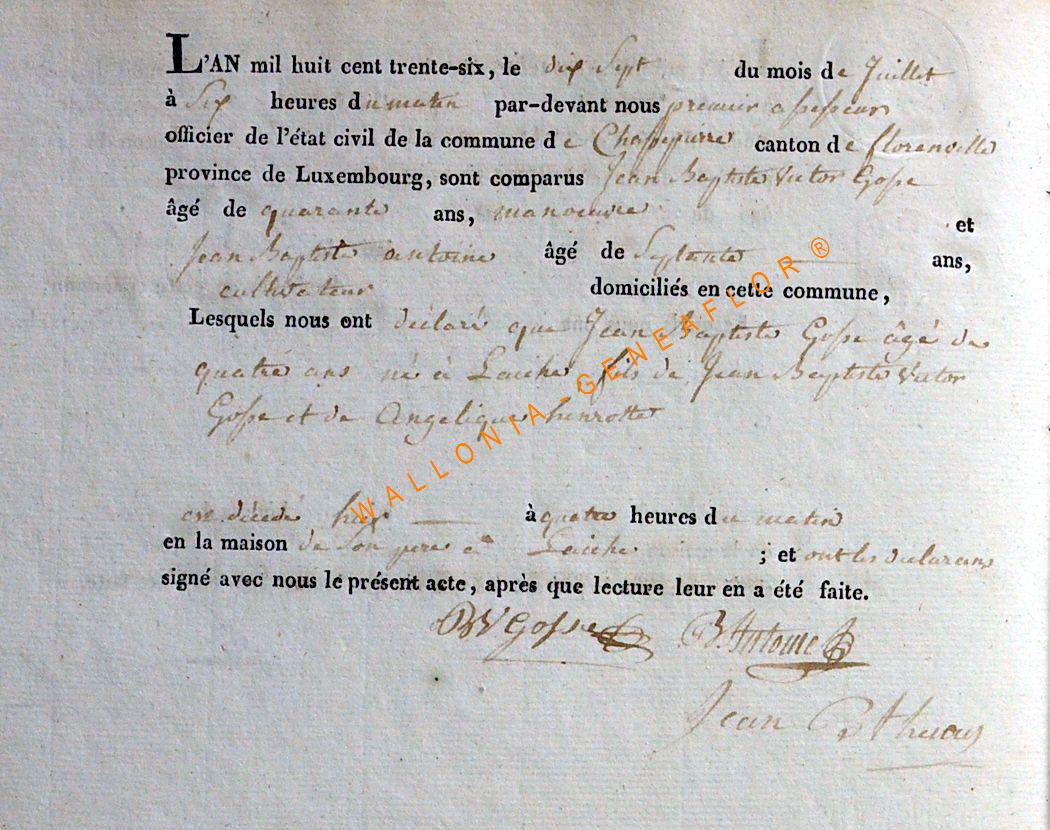 L'AN mil huit cent trente-six, le dix Sept du mois de Juillet
à Six heures du matin par-devant nous premier assesseur
officier de l'état civil de la commune de Chassepierre canton de florenville
province de Luxembourg, sont comparus Jean Baptiste Victor Gosse
âgé de quarante ans, manoeuvre et
Jean Baptiste antoine âgé de Septante ans,
cultivateur domiciliés en cette commune,
Lesquels nous ont déclaré que Jean Baptiste Gosse âgé de
quatre ans né à Laiche fils de Jean Baptiste Victor
Gosse et de Angelique henrotte
est décédé hier à quatre heures du matin
en la maison de Son pere à Laiche ; et ont les declarans
signé avec nous le présent acte, après que lecture leur en a été faite.
BV Gosse B. Antoine
Jean
WALLONIA-GENEAFLOR®